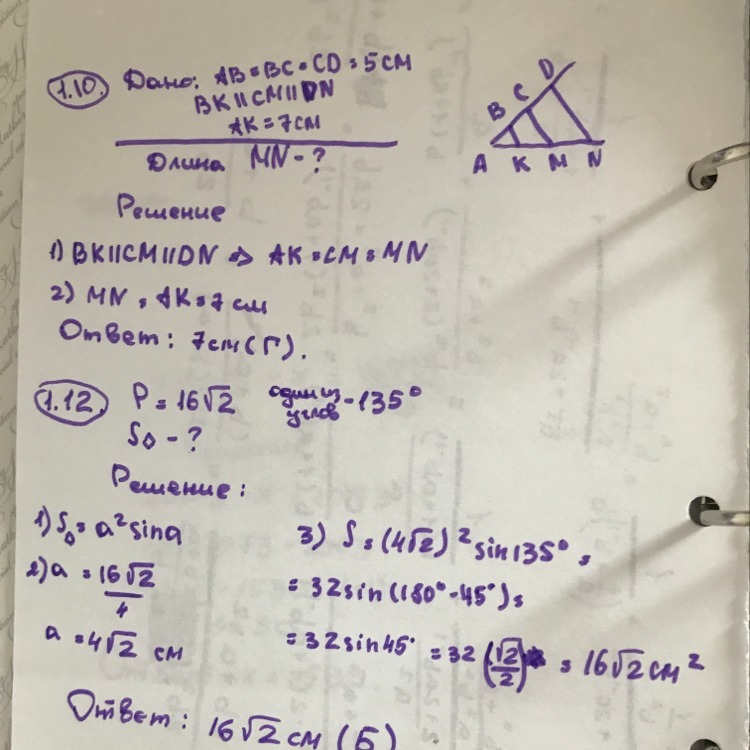 1.10. Дано: AB = BC = CD = 5 см
BK || CM || DN
AK = 7 см
Длина MN - ?
A B C D K M N
Решение
1) BK || CM || DN => AK = CM = MN
2) MN = AK = 7 см
Ответ: 7 см (Г).
1.12. P = 16√2 один из углов - 135°
S◊ - ?
Решение:
1) S◊ = a² sina
2) a = 16√2/4
a = 4√2 см
3) S = (4√2)² sin 135° =
= 32 sin (180° - 45°) =
= 32 sin 45° = 32 (√2/2) = 16√2 см²
Ответ: 16√2 см (Б)